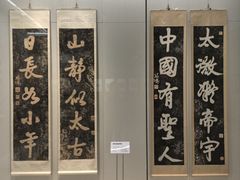 太帝宇
中國有聖人
山靜似太古
日長如小年